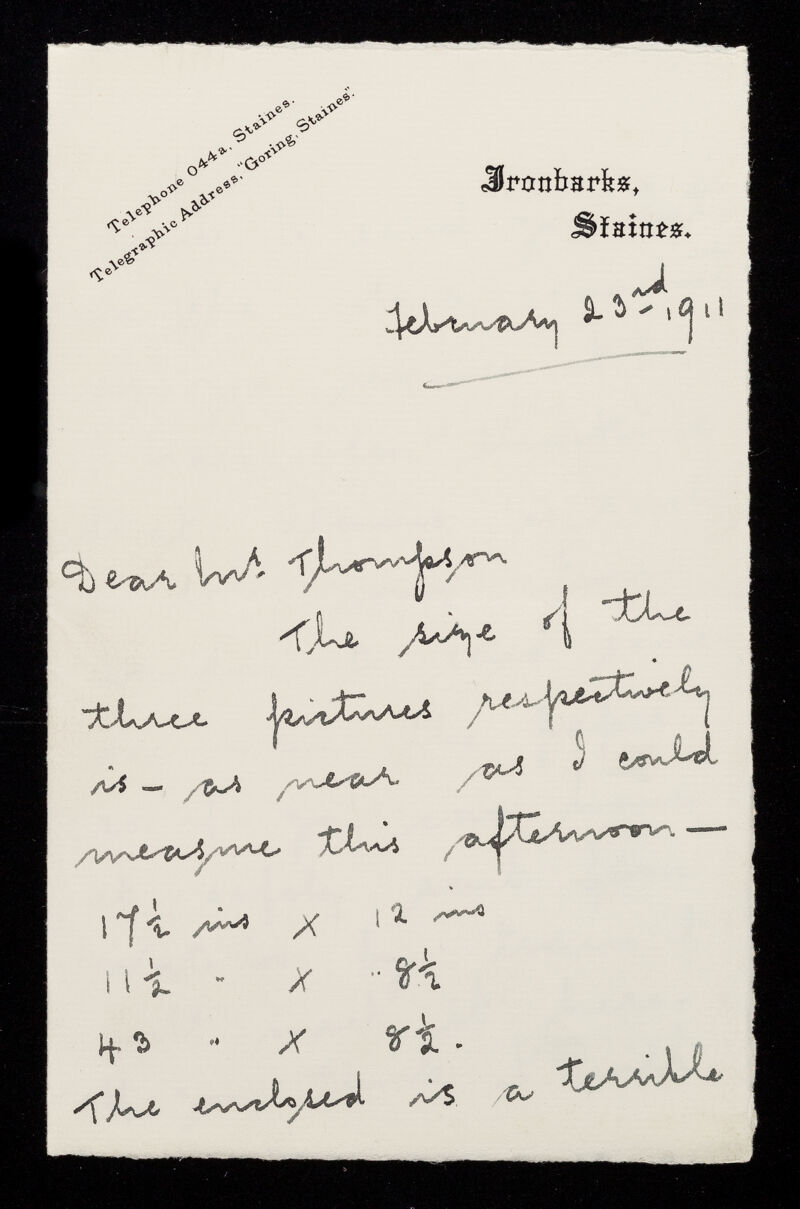 Telephone 044a, Staines.
Telegraphic Address, "Goring, Staines".
Ironbarks,
Staines.
February 23rd 1911
Dear Mr. Thompson
The size of the
three pictures respectively
is – as near as I could
measure this afternoon –
17½ ins X 12 ins
11½ " X " 8½
43 " X 8½.
The enclosed is a terrible